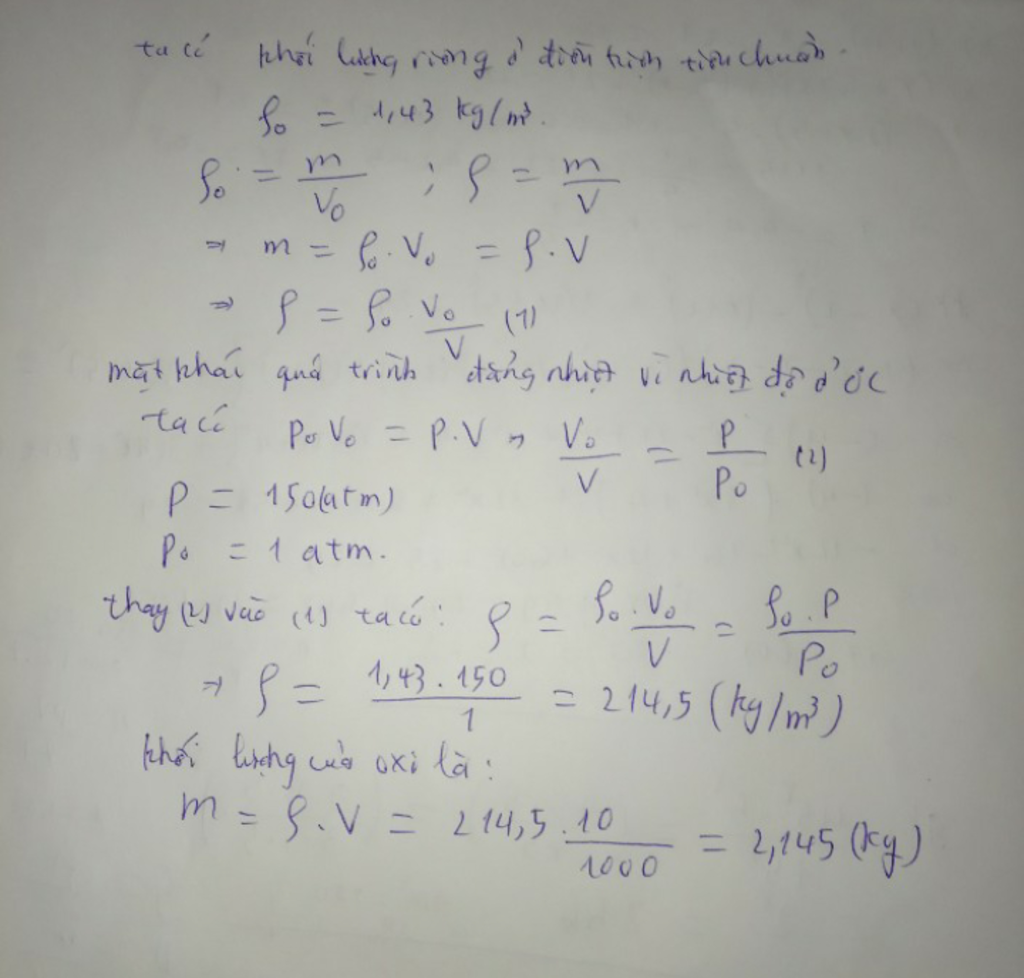 ta có khối lượng riêng ở điều kiện tiêu chuẩn.
ρ₀ = 1,43 kg/m³.
ρ₀ = m/V₀ ; ρ = m/V
⇒ m = ρ₀.V₀ = ρ.V
⇒ ρ = ρ₀.V₀/V (1)
mặt khác quá trình đẳng nhiệt vì nhiệt độ ở 0°C
ta có P₀V₀ = P.V ⇒ V₀/V = P/P₀ (2)
P = 150(atm)
P₀ = 1 atm.
thay (2) vào (1) ta có: ρ = ρ₀.V₀/V = ρ₀.P/P₀
⇒ ρ = 1,43.150/1 = 214,5 (kg/m³)
khối lượng của oxi là:
m = ρ.V = 214,5.10/1000 = 2,145 (kg)